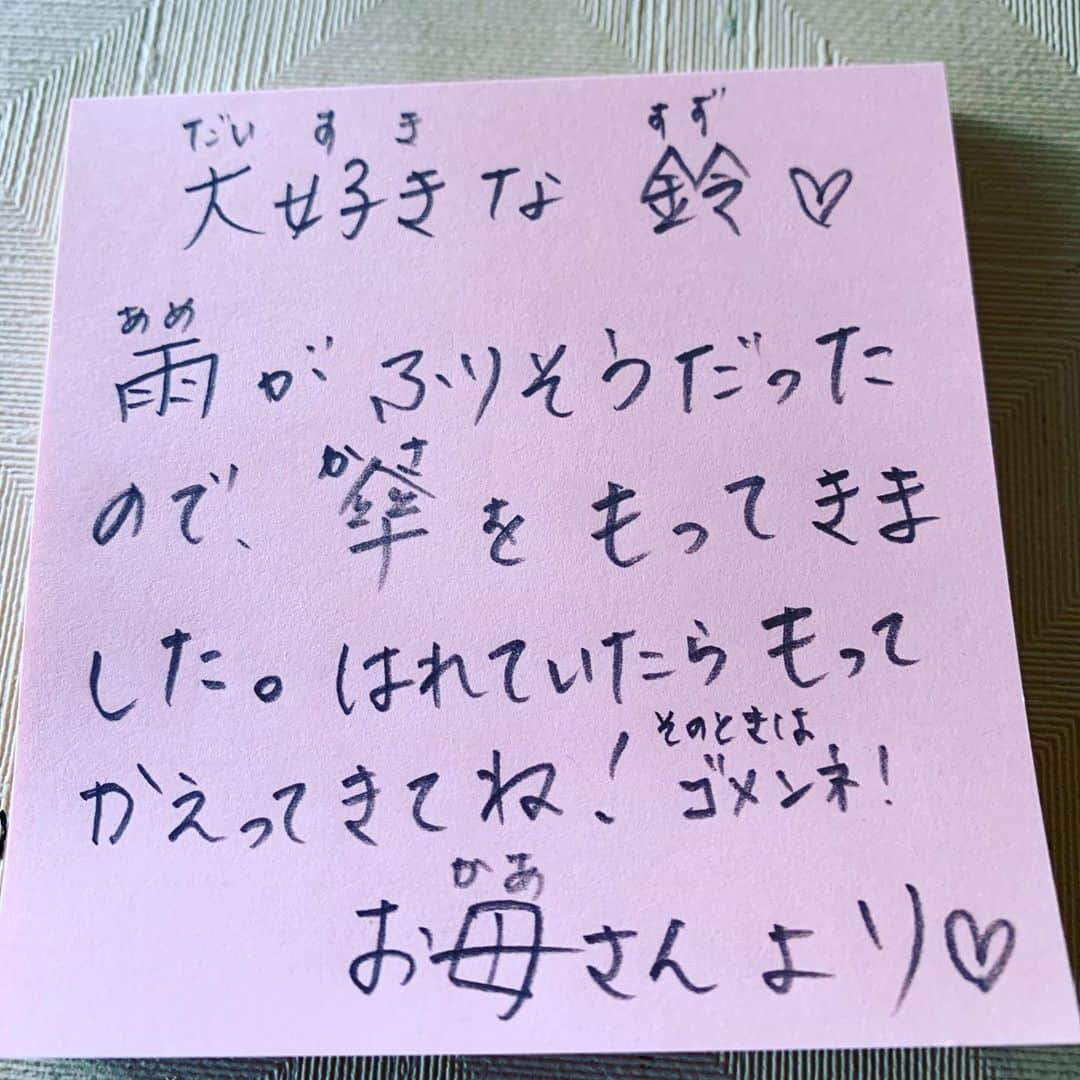 だい す き すず
大好きな 鈴♡
あめ
雨がふりそうだった
かさ
ので、傘をもってきま
した。はれていたらもって
そのときは
かえってきてね! ゴメンネ!
かあ
お母さんより♡